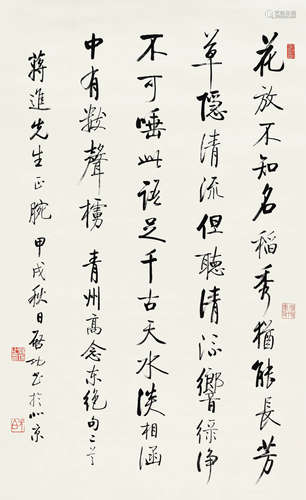 花放不知名稻秀猶能長芳
草隱清流但聽清流響綠净
不可唾此語足千古天水淡相涵
中有數聲櫓 青州高念东絕句二首
蔣進先生正腕 甲戌秋日啟功书於北京